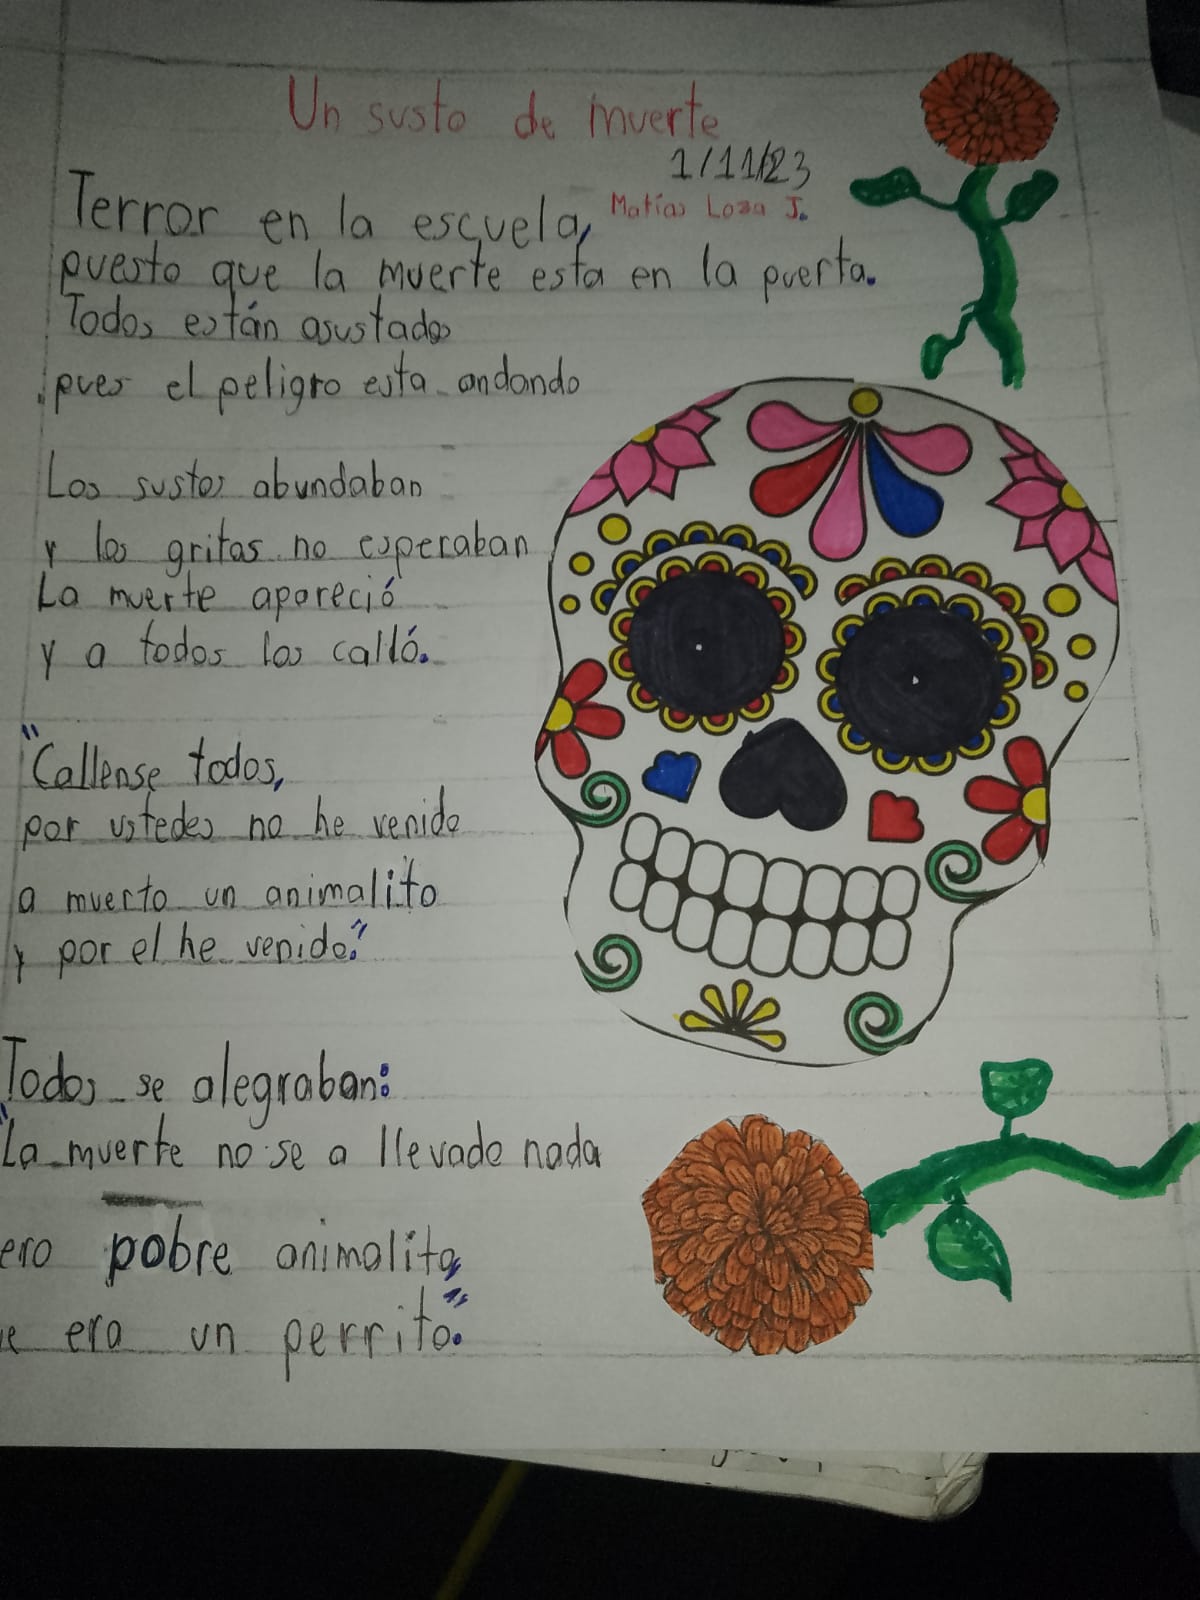 Un susto de muerte
1/11/23
Matías Loza J.
Terror en la escuela,
puesto que la muerte esta en la puerta.
Todos están asustados
pues el peligro esta andando
Los sustos abundaban
y los gritas no esperaban
La muerte apareció
y a todos los calló.
"Callense todos,
por ustedes no he venido
a muerto un animalito
y por el he venido."
Todos se alegraban:
"La muerte no se a llevado nada
ero pobre animalito,
e era un perrito."